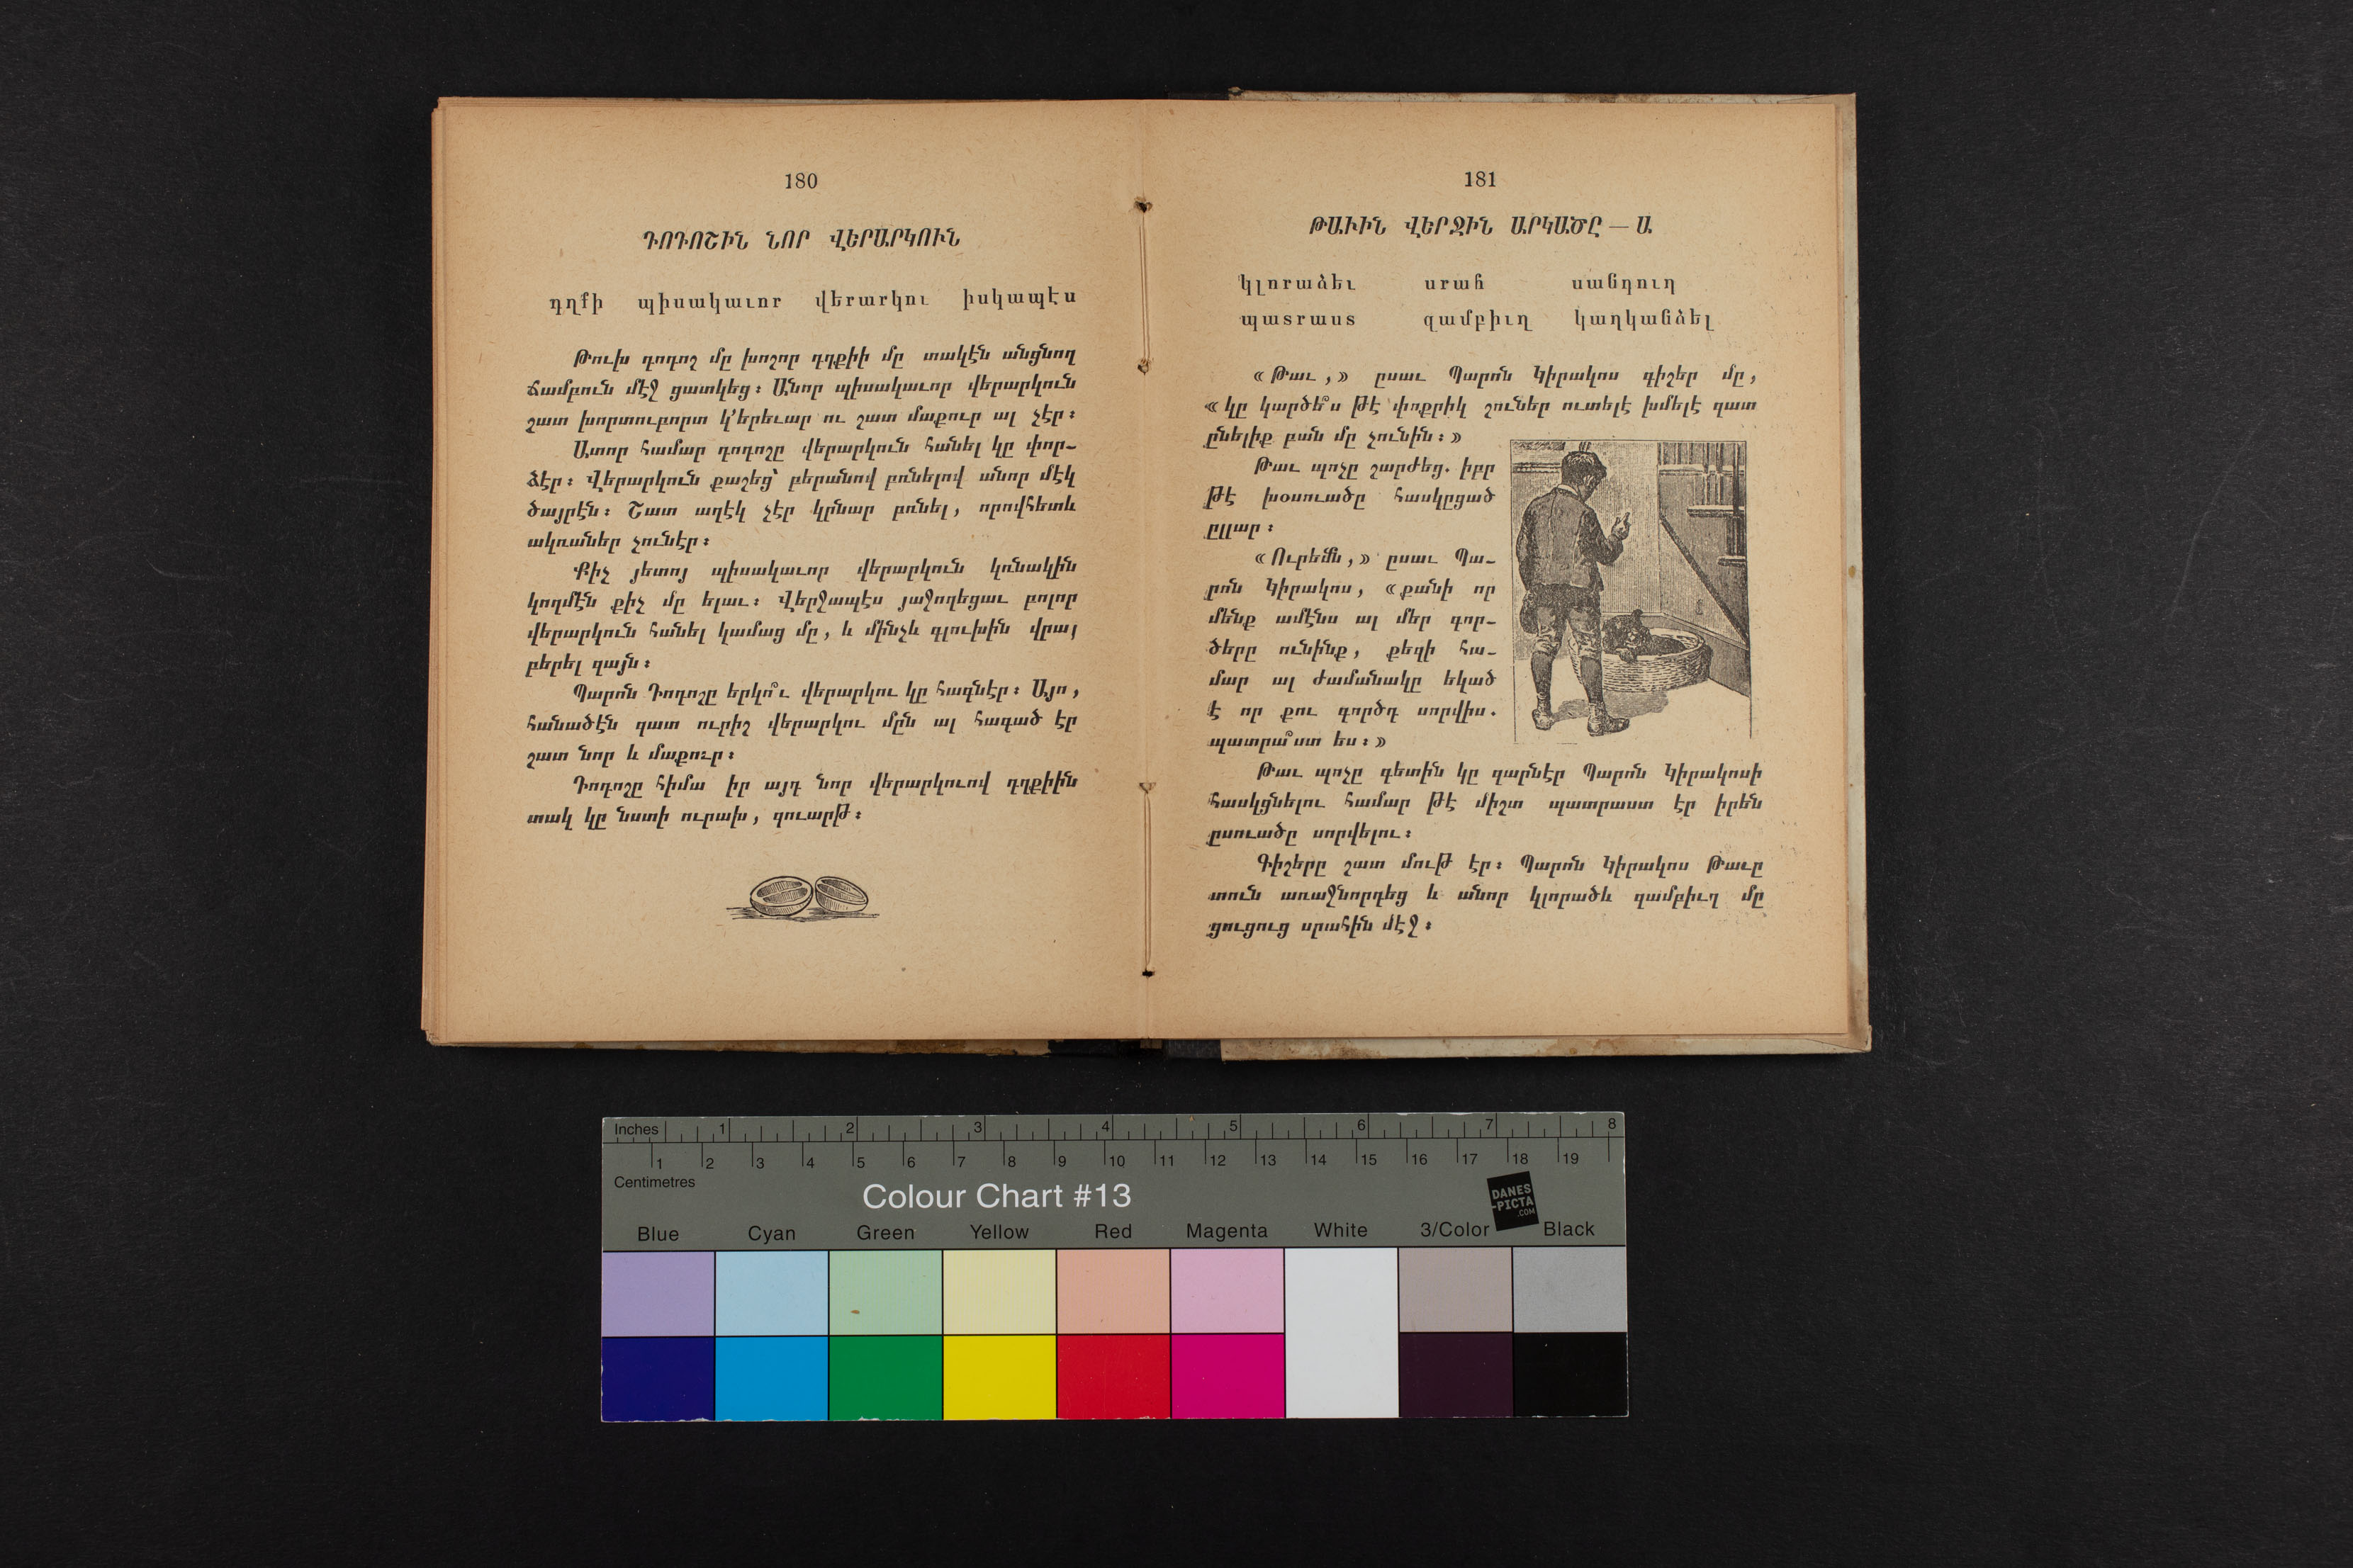 180
ԴՈԴՈՇԻՆ ՆՈՐ ՎԵՐԱՐԿՈՒՆ
դղքի պիսակաւոր վերարկու իսկապէս
Թուխ դոդոշ մը խոշոր դղքիի մը տակէն անցնող
ճամբուն մէջ ցատկեց։ Անոր պիսակաւոր վերարկուն
շատ խորտուբորտ կ՚երեւար ու շատ մաքուր ալ չէր։
Ատոր համար դոդոշը վերարկուն հանել կը փոր-
ձէր։ Վերարկուն քաշեց՝ բերանով բռնելով անոր մէկ
ծայրէն։ Շատ աղէկ չէր կրնար բռնել, որովհետև
ակռաներ չունէր։
Քիչ յետոյ պիսակաւոր վերարկուն կռնակին
կողմէն քիչ մը ելաւ։ Վերջապէս յաջողեցաւ բոլոր
վերարկուն հանել կամաց մը, և մինչև գլուխին վրայ
բերել զայն։
Պարոն Դոդոշը երկո՞ւ վերարկու կը հագնէր։ Այո,
հանածէն զատ ուրիշ վերարկու մըն ալ հագած էր
շատ նոր և մաքուր։
Դոդոշը հիմա իր այդ նոր վերարկուով դղքիին
տակ կը նստի ուրախ, զուարթ։
181
ԹԱՒԻՆ ՎԵՐՋԻՆ ԱՐԿԱԾԸ — Ա
կլորաձեւ սրահ սանդուղ
պատրաստ զամբիւղ կաղկանձել
«Թաւ,» ըսաւ Պարոն Կիրակոս գիշեր մը,
«կը կարծե՞ս թէ փոքրիկ շուներ ուտելէ խմելէ զատ
ընելիք բան մը չունին։»
Թաւ պոչը շարժեց. իբր
թէ խօսուածը հասկըցած
ըլլար։
«Ուրեմն,» ըսաւ Պա-
րոն Կիրակոս, «քանի որ
մենք ամէնս ալ մեր գոր-
ծերը ունինք, քեզի հա-
մար ալ ժամանակը եկած
է որ քու գործդ սորվիս.
պատրա՞ստ ես։»
Թաւ պոչը գետին կը զարնէր Պարոն Կիրակոսի
հասկցնելու համար թէ միշտ պատրաստ էր իրեն
ըսուածը սորվելու։
Գիշերը շատ մութ էր։ Պարոն Կիրակոս Թաւը
տուն առաջնորդեց և անոր կլորաձև զամբիւղ մը
ցուցուց սրահին մէջ։
Inches 1 2 3 4 5 6 7 8
1 2 3 4 5 6 7 8 9 10 11 12 13 14 15 16 17 18 19
Centimetres
Colour Chart #13
DANES
-PICTA
.COM
Blue Cyan Green Yellow Red Magenta White 3/Color Black